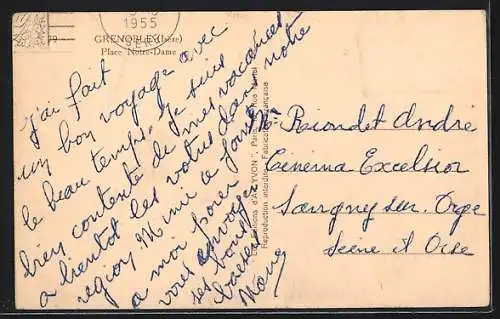 1955
GRENOBLE (Isère)
Place Notre-Dame
J'ai fait
un bon voyage avec
le beau temps. Je suis
bien contente de mes vacances
a bientot les votres dans notre
region. M mie ce joint
a moi pour
vous envoyer
ses bons
baisers
Editions d'Art YVON, Paris
Reproduction interdite Fabrication Française
Mr Riondet André
Cinema Excelsior
Savigny sur Orge
Seine et Oise